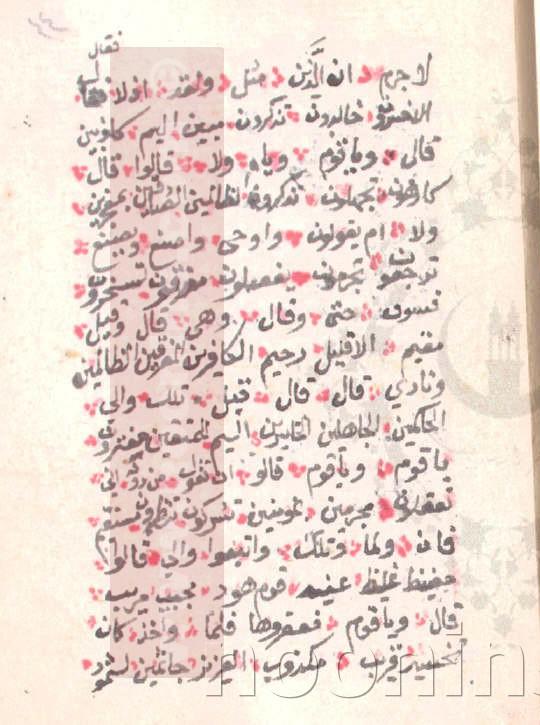 فقال
لا جرم ان الذين مثل ولقد اولا
الاخسرون خالدون تذكرون مبين اليم كاذبين
قال وياقوم وياه ولا قالوا قال
كارهون تجهلون تذكرون الظالمين الصادقين بمعجزين
ولا ام يقولون واوحى واصنع ويصنع
ترجعون تجرمون يفعلون مغرقون تسخرون
فسوف حتى وقال وهي قال وقيل
مقيم الا قليل رحيم الكافرين المغرقين الظالمين
ونادى قال قال قيل تلك والى
الحاكمين الجاهلين الخاسرين اليم للمتقين مفترون
ياقوم وياقوم قالوا ان نقول من دونه اني
تعقلون مجرمين بمومنين تشركون تنظرون مستقيم
فان ولما وتلك واتبعوا والى قالوا
حفيظ غليظ عنيد قوم هود مجيب مريب
قال وياقوم فعقروها فلما واخذ كان
تخسير قريب مكذوب العزيز جاثمين لثمود
noorlib